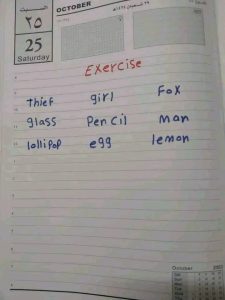 السبت
OCTOBER
٢٥
25
Saturday
Exercise
thief girl Fox
glass Pencil man
lollipop egg lemon
October